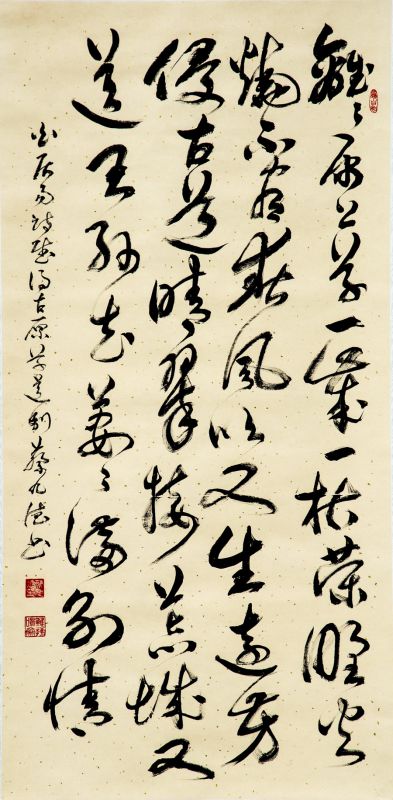 離々原上草一歲一枯榮野火
燒不盡春風吹又生遠芳
侵古道晴翠接荒城又
送王孫去萋々滿別情
白居易詩賦得古原草送別 蔡九書